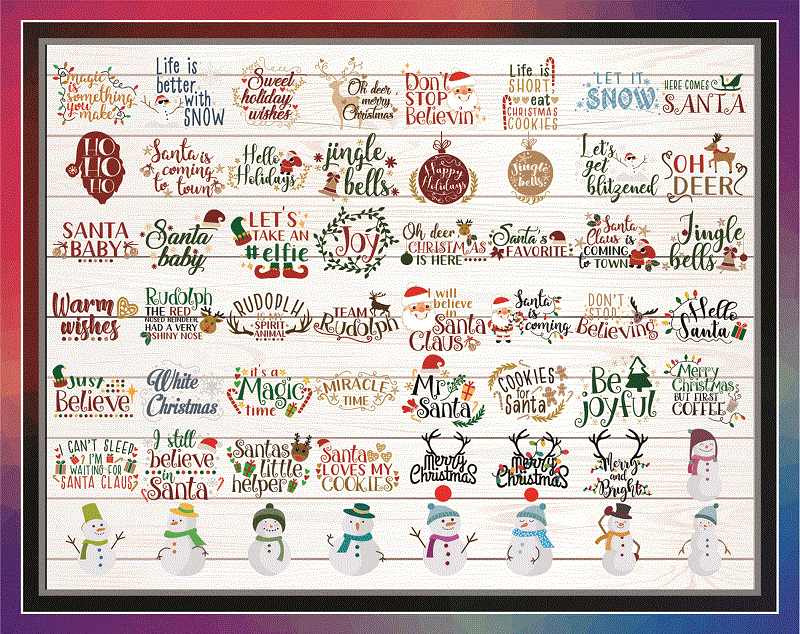 magic
is
something
you
make
Life is
better
with
SNOW
Sweet
holiday
wishes
Oh deer
merry
Christmas
Don't
STOP
Believin
Life is
SHORT
eat
CHRISTMAS
COOKIES
LET IT
SNOW
HERE COMES
SANTA
HO
HO
HO
Santa is
coming
to town
Hello
Holidays
jingle
bells
Happy
Holidays
Jingle
bells!
Let's
get
blitzened
OH
DEER
SANTA
BABY
Santa
baby
LET'S
TAKE AN
#elfie
Joy
Oh deer
CHRISTMAS
IS HERE
Santa's
FAVORITE
Santa
Claus is
COMING
to TOWN
Jingle
bells
Warm
wishes
Rudolph
THE RED
NOSED REINDEER
HAD A VERY
SHINY NOSE
RUDOPLH
IS MY
SPIRIT
ANIMAL
TEAM
Rudolph
I will
believe
in
Santa
Claus
Santa
is
coming
DON'T
STOP
Believing
Hello
Santa
JUST
Believe
White
Christmas
it's a
Magic
time
MIRACLE
TIME
Mr
Santa
COOKIES
for
Santa
Be
joyful
Merry
Christmas
BUT FIRST
COFFEE
I CAN'T SLEEP
I'M
WAITING FOR
SANTA CLAUS
I still
believe
in
Santa
Santas
little
helper
Santa
LOVES MY
COOKIES
Merry
Christmas
Merry
Christmas
Merry
and
Bright